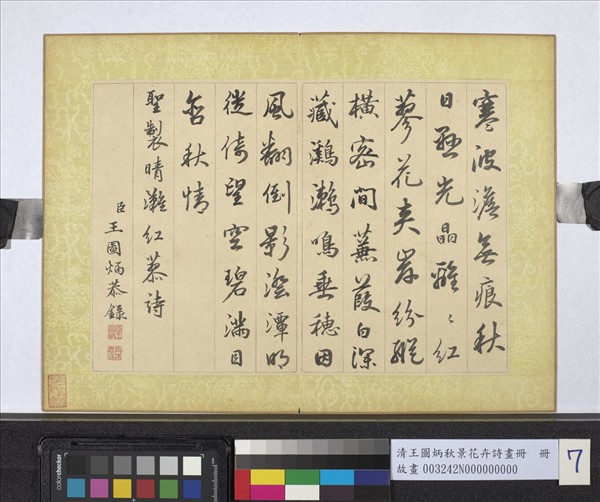 寒波澹無痕秋
日光晶離〻紅
蓼花夾岸紛縱
橫密間蒹葭白深
藏鸂鶒鳴垂穗因
風翻倒影澄潭明
徙倚望空碧滿目
含秋情
聖製晴灘紅蓼詩
臣王圖炳恭錄
colorchecker
清王圖炳秋景花卉詩畫冊 冊
故畫 003242N000000000
7